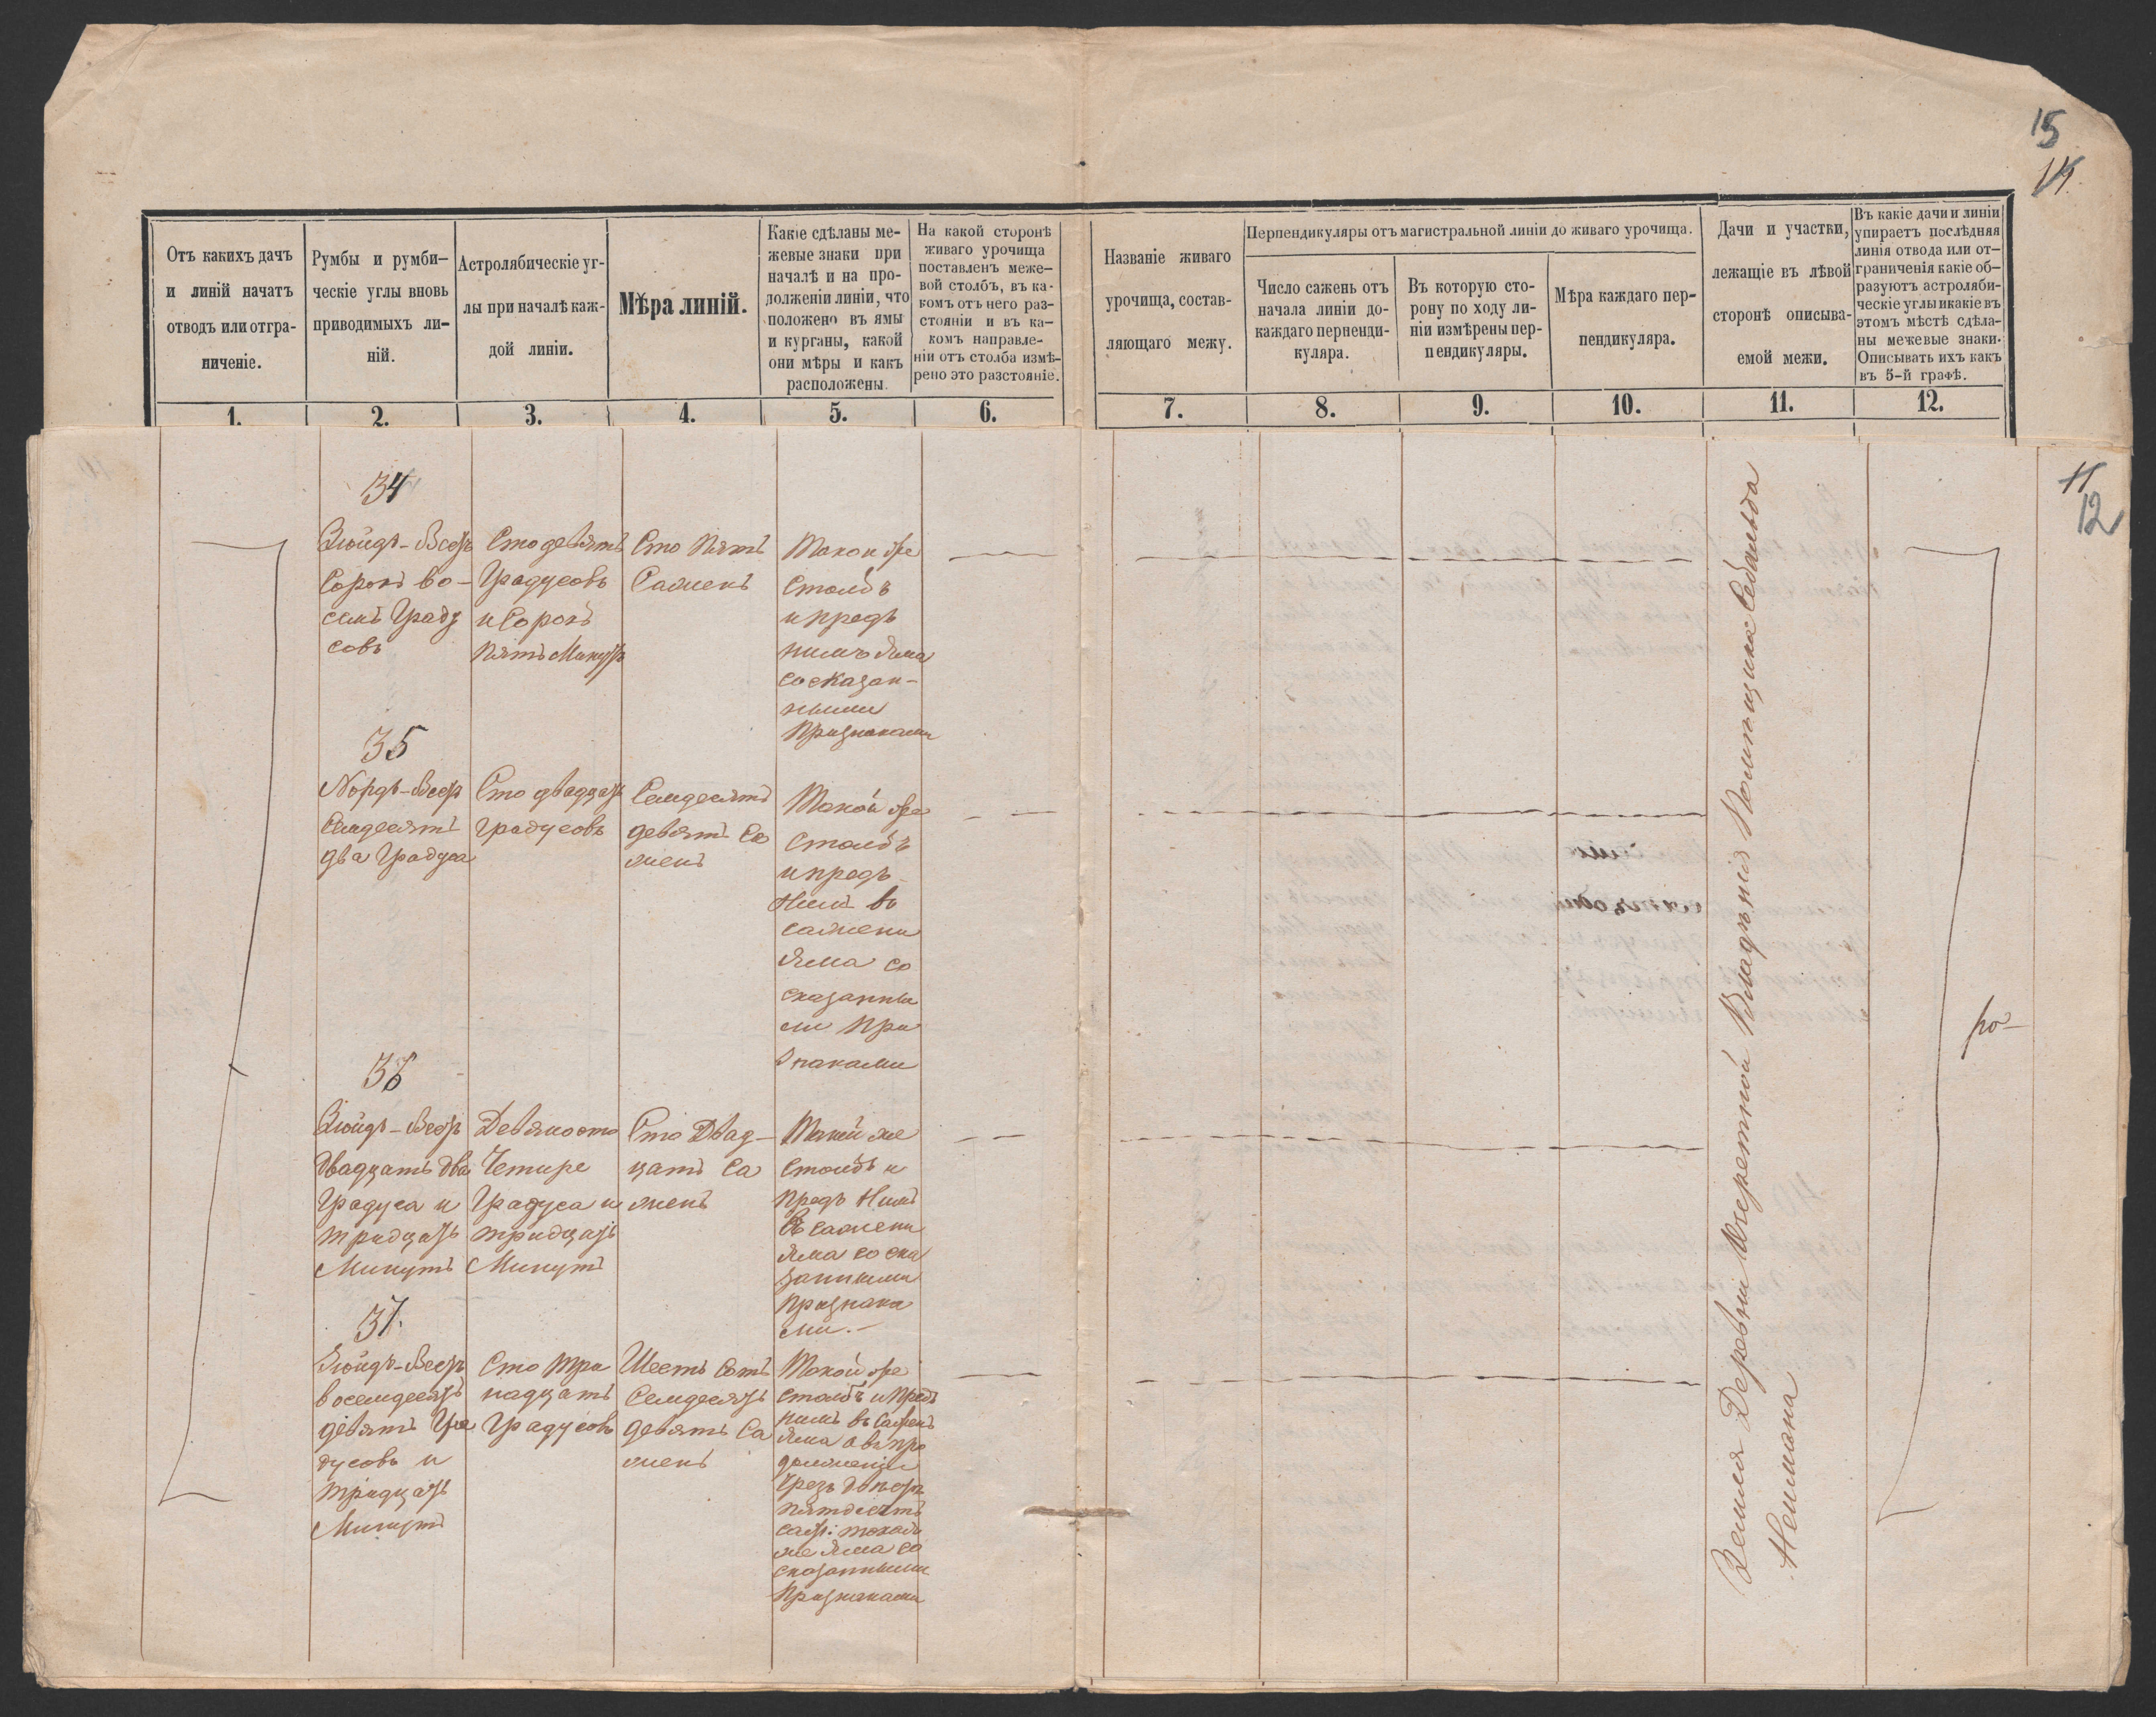 15
14
Отъ какихъ дачъ
и линій начатъ
отводъ или отгра-
ниченіе.
Румбы и румби-
ческіе углы вновь
приводимыхъ ли-
ній.
Астролябическіе уг-
лы при началѣ каж-
дой линіи.
Мѣра линій.
Какіе сдѣланы ме-
жевые знаки при
началѣ и на про-
должені линіи, что
положено въ ямы
и курганы, какой
они мѣры и какъ
расположены.
На какой сторонѣ
живаго урочища
поставленъ меже-
вой столбъ, въ ка-
комъ отъ него раз-
стояніи и въ ка-
комъ направле-
ніи отъ столба измѣ-
рено это разстояніе.
Названіе живаго
урочища, состав-
ляющаго межу.
Перпендикуляры отъ магистральной линіи до живаго урочища.
Число сажень отъ
начала линіи до
каждаго перпенди-
куляра.
Въ которую сто-
рону по ходу ли-
ніи измѣрены пер-
пендикуляры.
Мѣра каждаго пер-
пендикуляра.
Дачи и участки,
лежащіе въ лѣвой
сторонѣ описыва-
емой межи.
Въ какіе дачи и линіи
упираетъ послѣдняя
линія отвода или от-
граниченія какіе об-
разуютъ астроляби-
ческіе углы и какіе въ
этомъ мѣстѣ сдѣла-
ны межевые знаки.
Описывать ихъ какъ
въ 5-й графѣ.
1.
2.
3.
4.
5.
6.
7.
8.
9.
10.
11.
12.
11
12
34
Зюйдъ-Вестъ
Сорокъ во-
семь Граду
совъ
Сто девять
Градусовъ
и Сорокъ
пять Минутъ
Сто Пять
Сажень
Такой же
столбъ
и предъ
нимъ яма
со сказан-
ными
Признаками
35
Нордъ-Вестъ
Семдесятъ
два Градуса
Сто двадцать
градусовъ
Семдесятъ
девять Са
жень
Такой же
столбъ
и предъ
Нимъ въ
сажени
яма со
сказанны
ми При
знаками
36
Зюйдъ-Вестъ
двадцать два
Градуса и
тридцать
Минутъ
Девяносто
Четыре
Градуса и
тридцать
Минутъ
Сто Двад-
цать Са
жень
Такой же
столбъ и
предъ Нимъ
въ сажени
яма со ска
занными
Признака
ми.-
37.
Зюйдъ-Вестъ
восемдесятъ
девять Гра
дусовъ и
тридцать
Минутъ
Сто Три
надцать
Градусовъ
Шесть Сотъ
Семдесятъ
девять Са
жень
Такой же
столбъ и Предъ
нимъ въ Сажень
яма а въ про
должени
Чрезъ двѣсти
пятдесятъ
саж: такая
же яма со
сказанными
Признаками
Земля Деревни Владѣнія Помѣщика
Неймана